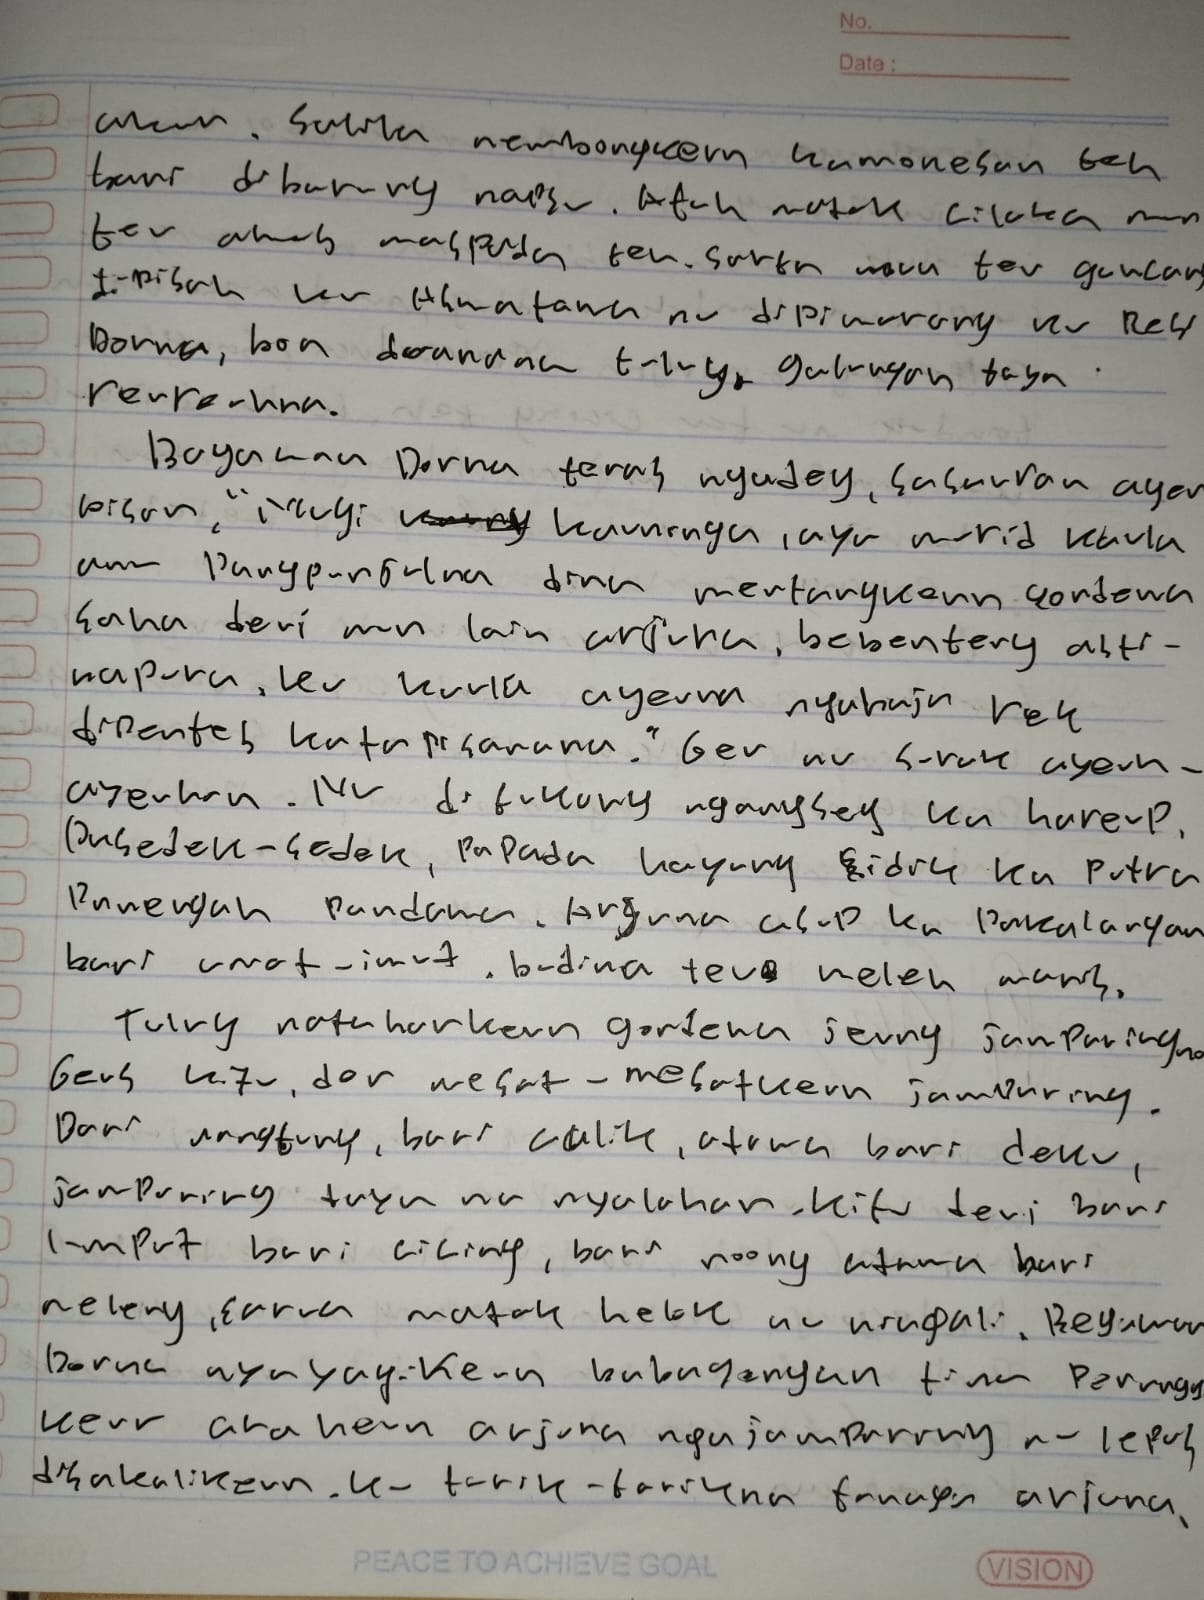 No.
Date :
akan. Salila nembongkeun kamonesan teh
bari dibarung napsu. Atuh matak cilaka mun
teu awas waspada teh. Sarta mun teu gancang
dipisah ku Aswatama nu dipiwarang ku Resi
Dorna, bon duanana tuluy galungan taya
reureuhna.
Bagawan Dorna terus nyudey, sasauran ayeu
bison, "Mugi kauninga, aya murid kaula
anu pangpunjulna dina mentangkeun gondewa
saha deui mun lain arjuna, bebenteng asti-
napura. ku kaula ayeuna nyuhaja rek
dipentes katapisanana." Ger nu surak ayeuh-
ayeuhan. Nu di tukang ngangseg ka hareup,
Pasedek-sedek, papada hayang sidik ka putra
Panengah Pandawa. Arjuna asup ka Pakalangan
bari imut-imut. budina teu weleh manis.
Tuluy natuharkeun gondewa jeung jamparingna
Geus kitu, dor mesat-mesatkeun jamparing.
Bari nangtung, bari calik, atawa bari deku,
jamparing taya nu nyalahan. Kitu deui bari
lumpat bari cicing, bari noong atawa bari
meleng, sarua matak helok nu ningali. Begawan
Dorna nyayagikeun babagongan tina Parunggu
keur arahen arjuna ngajamparing nu lepas
disakalikeun. ku tarik-tarikna tanaga arjuna,
PEACE TO ACHIEVE GOAL
VISION